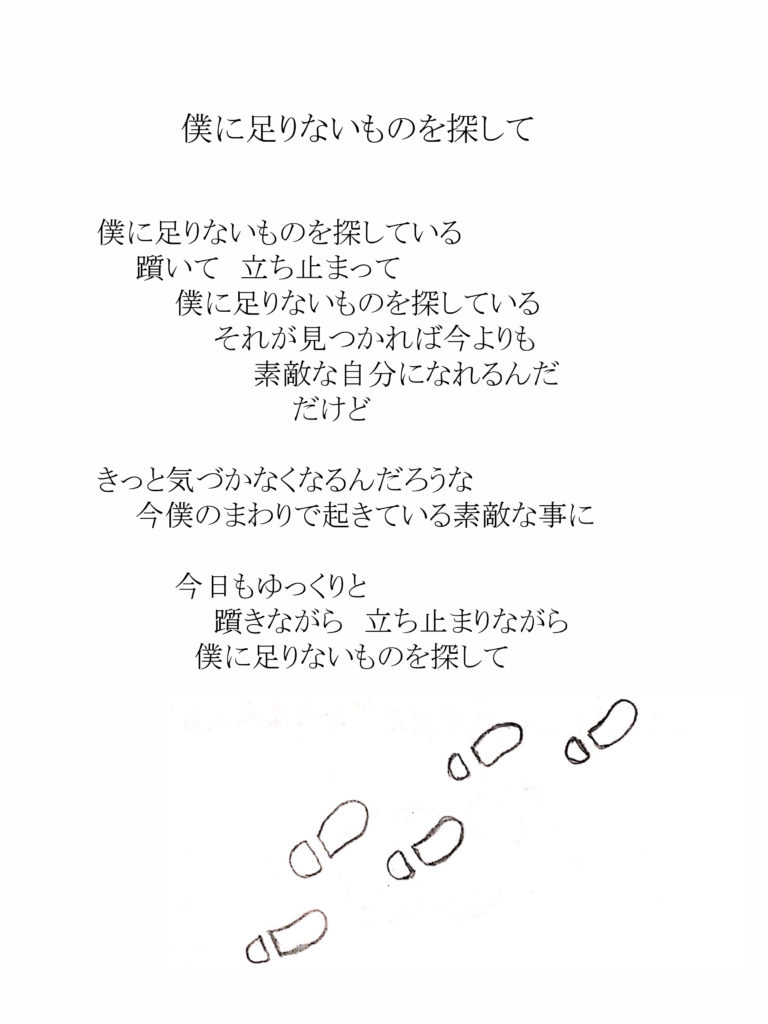 僕に足りないものを探して
僕に足りないものを探している
躓いて　立ち止まって
僕に足りないものを探している
それが見つかれば今よりも
素敵な自分になれるんだ
だけど
きっと気づかなくなるんだろうな
今僕のまわりで起きている素敵な事に
今日もゆっくりと
躓きながら　立ち止まりながら
僕に足りないものを探して